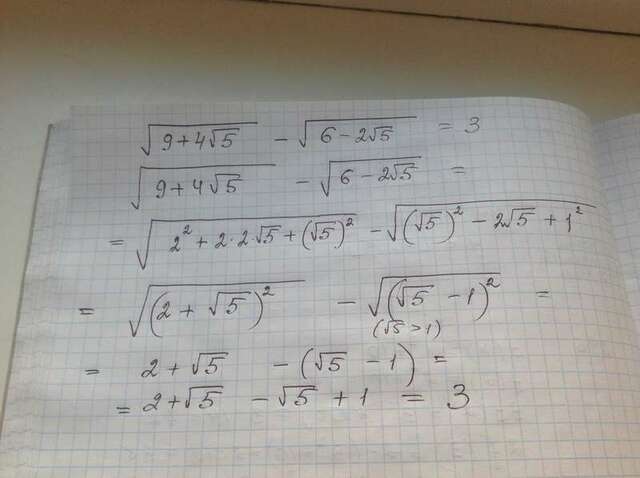 √(9+4√5) - √(6-2√5) = 3
√(9+4√5) - √(6-2√5) =
= √(2²+2·2√5+(√5)²) - √((√5)²-2√5+1²)
= √((2+√5)²) - √((√5-1)²) =
(√5>1)
= 2+√5 - (√5-1) =
= 2+√5 - √5 + 1 = 3